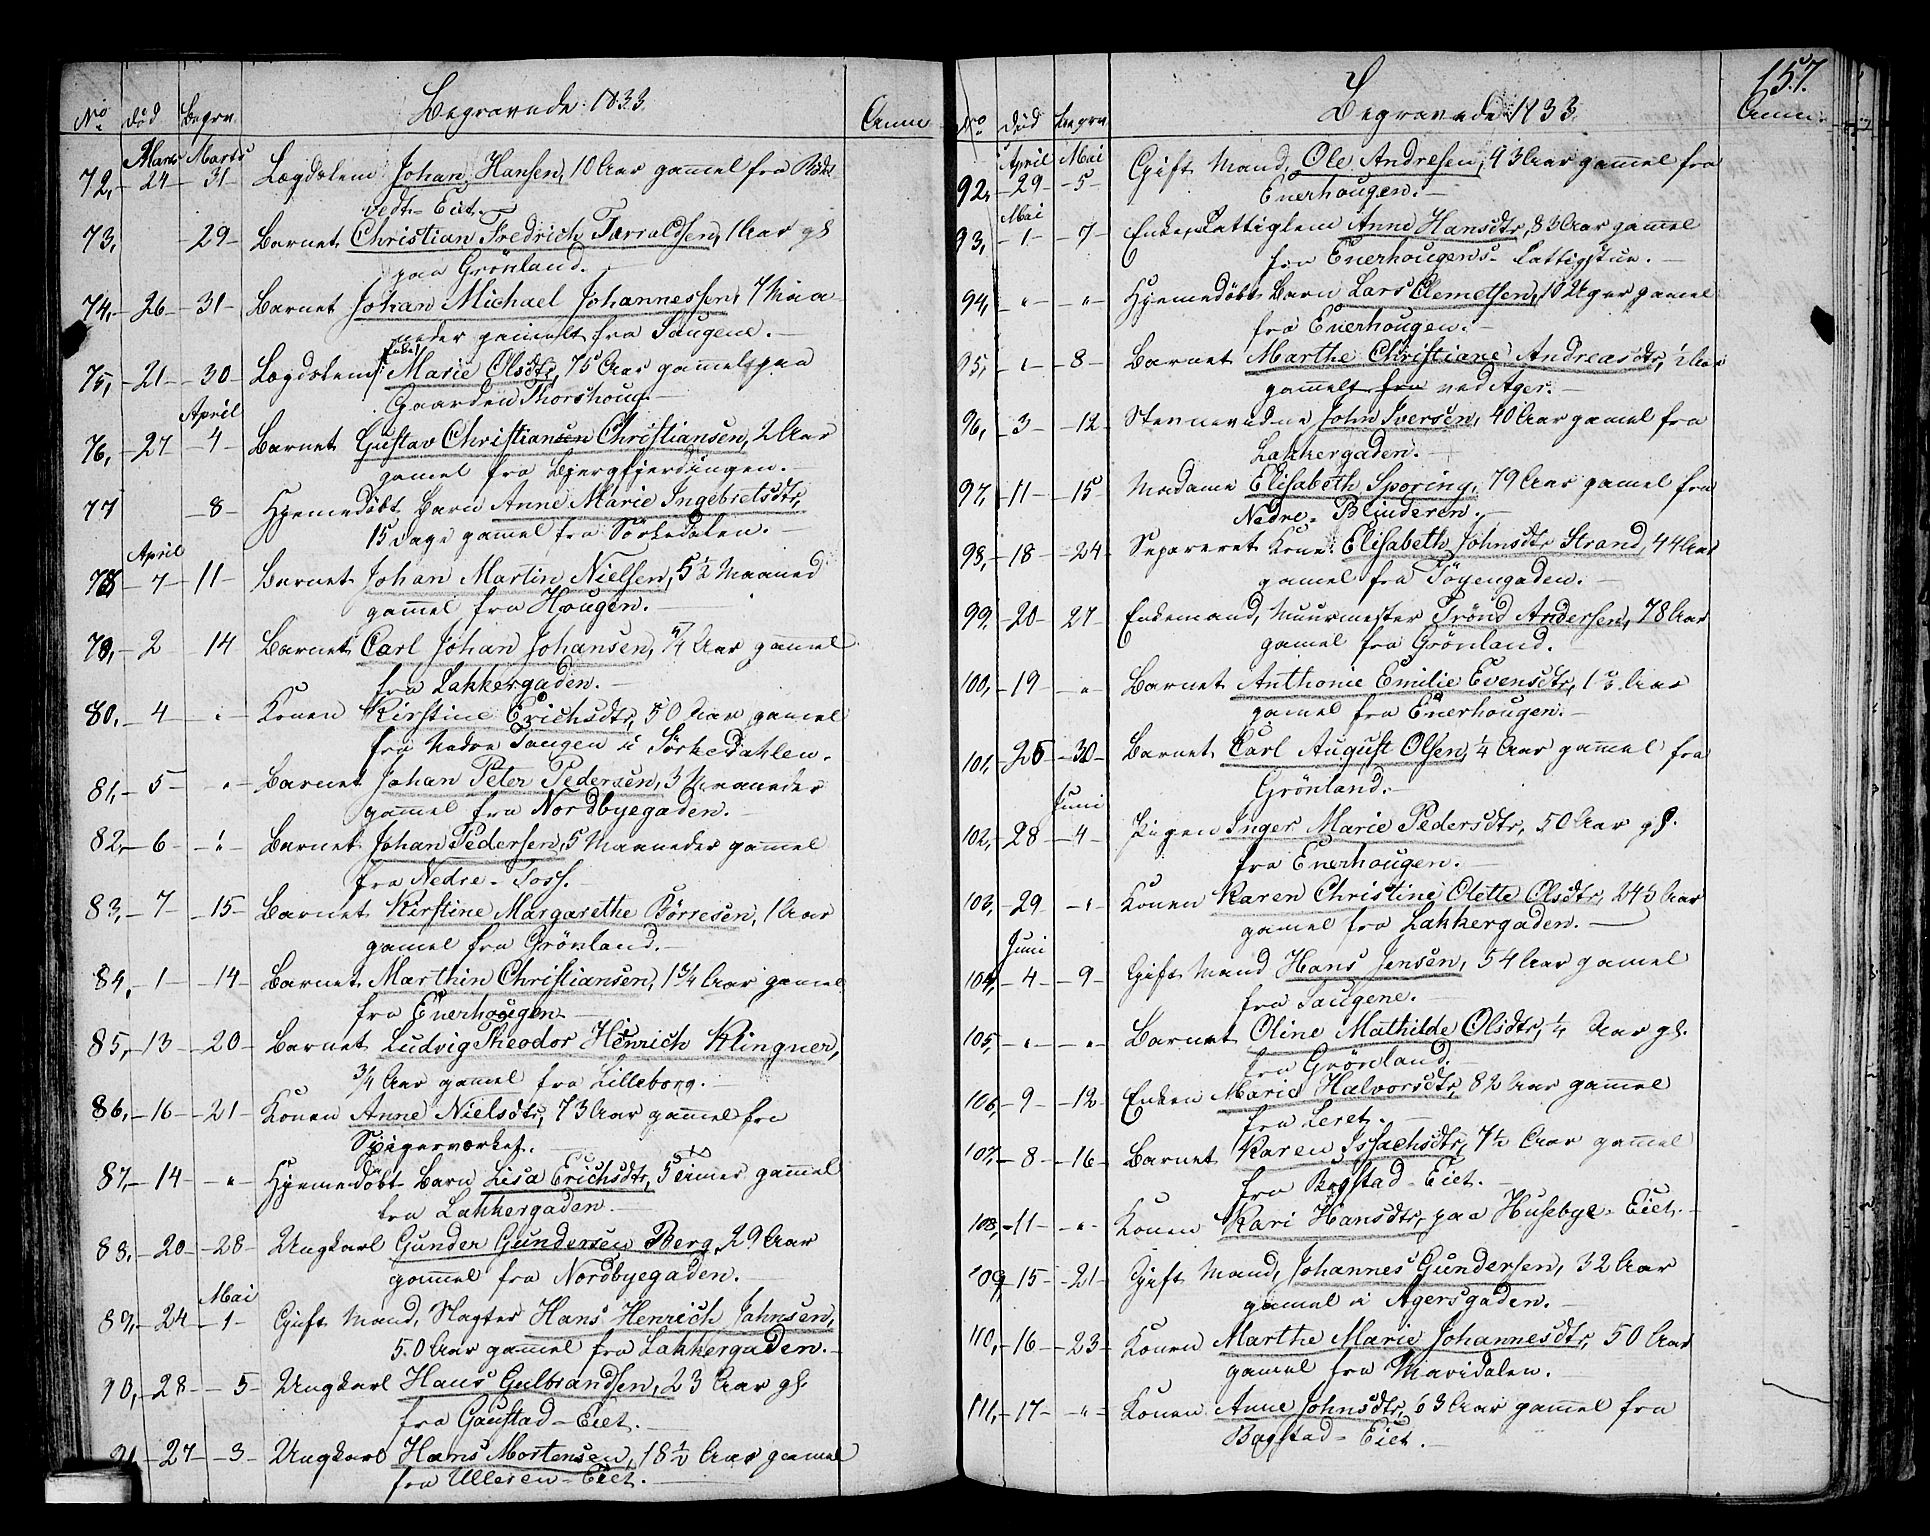 No død Begrv. Begravede 1833. Anm
Marts Marts
72, 24 31 Lægdslem Johan Hansen, 10 Aar gammel fra Röd-
vedt-Eiet.
73, 29 Barnet Christian Fredrich Torraldsen, 1 Aar gl
paa Grönland.
74, 26 31 Barnet Johan Michael Johannessen, 7 Maa-
neder gammelt fra Saugene.
75, 21 30 Lægdslem, Enke, Marie Olsdtr, 75 Aar gammel paa
Gaarden Thorshoug.
April
76, 27 4 Barnet Gustav Christiansen Christiansen, 2 Aar
gamel fra Bjergfjerdingen.
77 8 Hjemedøbt Barn Anne Marie Ingebretsdtr,
15 Dage gamel fra Sörkedalen.
April
78 7 11 Barnet Johan Martin Nielsen, 5 1/2 Maaned
gammel fra Hougen.
79, 2 14 Barnet Carl Johan Johansen, 5/4 Aar gammel
fra Lakkergaden.
80, 4 " Konen Kirstine Erichsdtr, 50 Aar gamel
fra Nedre Tangen i Sörkedahlen.
81, 5 " Barnet Johan Peter Pedersen, 3 Maaneder
gamel fra Nordbyegaden.
82, 6 " Barnet Johan Pedersen, 5 Maaneder gamel
fra Nedre-Foss.
83, 7 15 Barnet Kirstine Margarethe Börresen, 1 Aar
gamel fra Grönland.
84, 1 14 Barnet Marthin Christiansen, 1 3/4 Aar gamel
fra Enerhougen
85, 13 20 Barnet Ludvig Theodor Henrich Klingner,
3/4 Aar gamel fra Lilleborg.
86, 16 21 Konen Anne Nielsdtr, 73 Aar gammel fra
Spigerværket.
87, 14 " Hjemedøbt Barn Lisa Erichsdtr, 5 Timer gammel
fra Lakkergaden.
88, 20 28 Ungkarl Gunder Gundersen Berg, 29 Aar
gammel fra Nordbyegaden.
Mai
89, 24 1 Gift Mand, Slagter Hans Henrich Jahnsen,
50 Aar gammel fra Lakkergaden.
90, 28 5 Ungkarl Hans Gulbrandsen, 23 Aar gl.
fra Gaustad-Eiet.
91 27 3 Ungkarl Hans Mortensen, 18 1/2 Aar gamel
fra Ulleren-Eiet.
157.
No Död Begrv Begravede 1833 Anm.
April Mai
92, 29 5 Gift Mand, Ole Andresen, 43 Aar gammel fra
Enerhougen.
Mai
93, 1 7 Enke, Fattiglem Anne Hansdtr, 83 Aar gammel
fra Enerhougens Fattigstue.
94, " " Hjemedøbt Barn Lars Clemetsen, 10 Uger gamel
fra Enerhougen.
95, " 8 Barnet Marthe Christiane Andreasdtr, 1/2 Aar
gammelt fra ved Ager.
96, 3 12 Stevnevidne John Iversen, 40 Aar gamel fra
Lakkergaden.
97, 11 15 Madame Elisabeth Sporing, 79 Aar gamel fra
Nedre-Blinderen.
98, 18 24 Separeret Kone Elisabeth Johnsdtr Strand, 44 Aar
gamel fra Töyengaden.
99, 20 27 Enkemand, Muurmester Trönd Andersen, 78 Aar
gamel fra Grönland.
100, 19 " Barnet Anthonie Emilie Evensdtr, Aar
gamel fra Enerhougen.
101, 25 30 Barnet Carl August Olsen, 1/4 Aar gammel fra
Grönland.
Juni
102, 28 4 Pigen Inger Marie Pedersdtr, 50 Aar gl.
fra Enerhougen.
103, 29 " Konen Karen Christine Olette Olsdtr, Aar
gamel fra Lakkergaden.
Juni
104, 4 9 Gift Mand Hans Jensen, 54 Aar gamel
fra Saugene.
105, " " Barnet Oline Mathilde Olsdtr, 1/4 Aar gl.
fra Grönland.
106, 9 12 Enken Marie Halvorsdtr, 82 Aar gammel
fra Leret.
107, 8 16 Barnet Karen Issachsdtr, 7 1/2 Aar gammel
fra Bogstad-Eiet.
108, 11 " Konen Kari Hansdtr, paa Husebye-Eiet.
109, 15 21 Gift Mand, Johannes Gundersen, 32 Aar
gamel i Agersgaden.
110, 16 23 Konen Marthe Marie Johannesdtr, 50 Aar
gamel fra Maridalen.
111, 17 " Konen Anne Johnsdtr, 63 Aar gammel fra
Bogstad-Eiet.